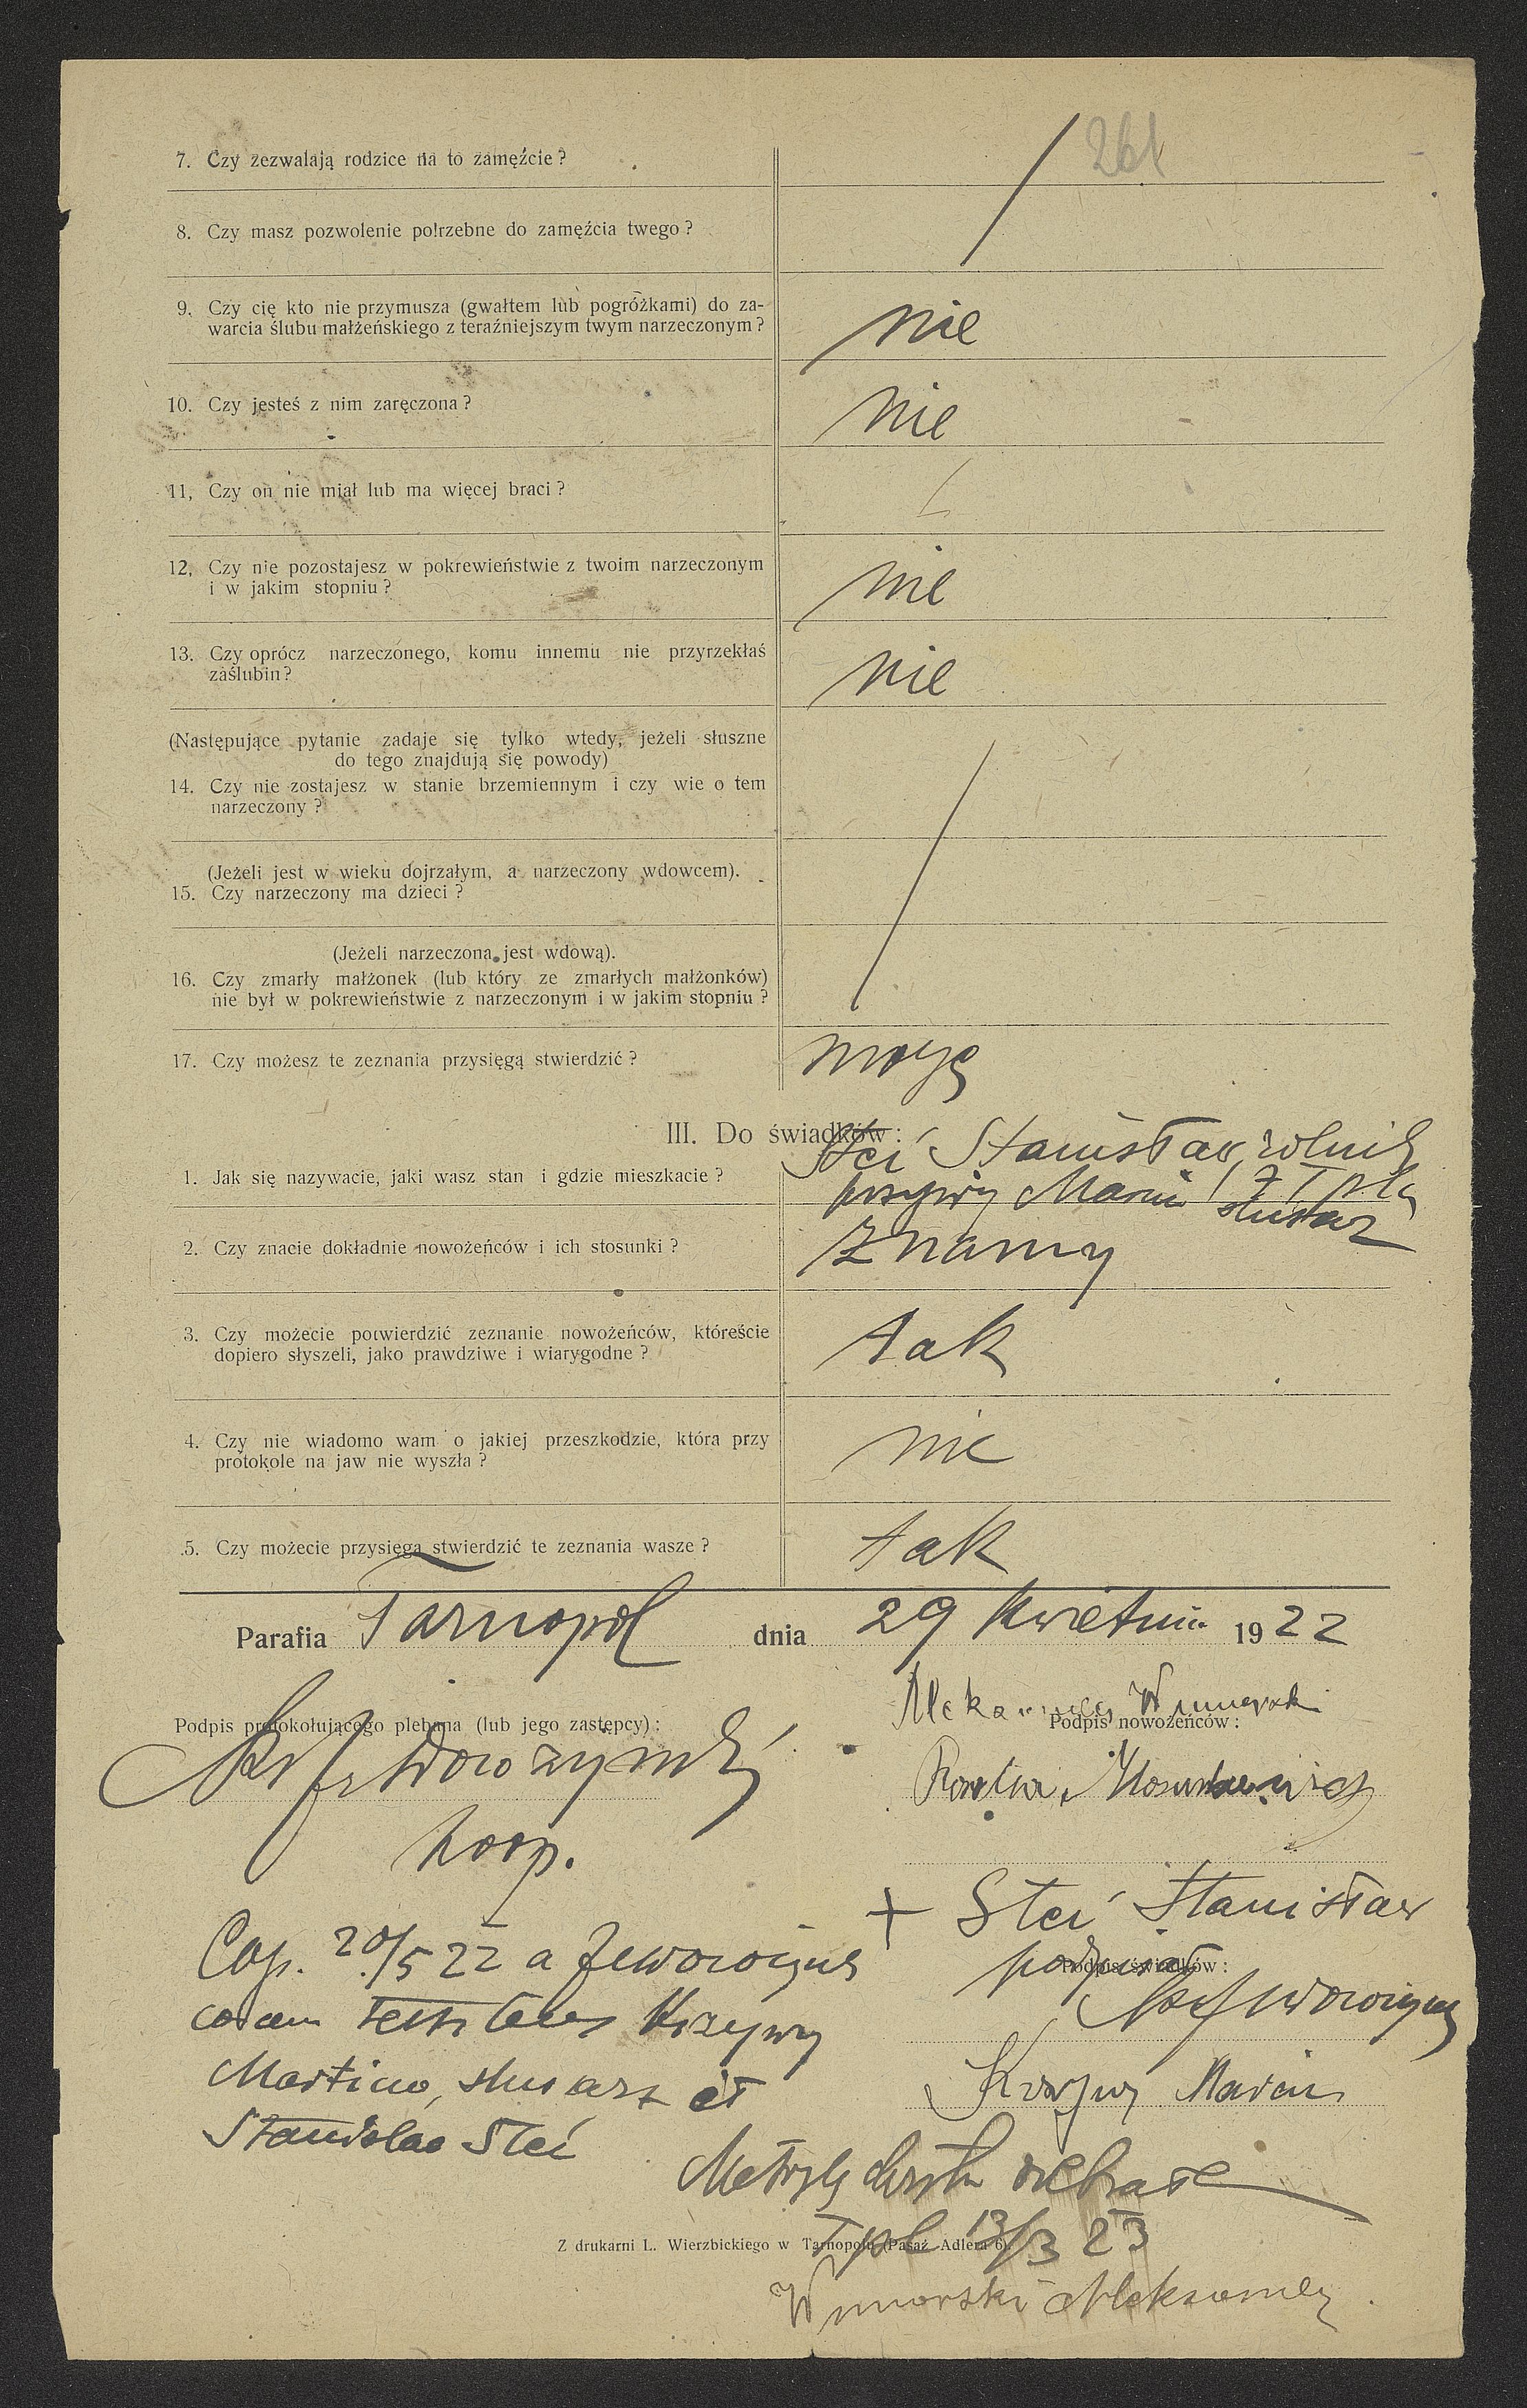 261
7. Czy zezwalają rodzice na to zamęźcie?
8. Czy masz pozwolenie potrzebne do zamęźcia twego?
9. Czy cię kto nie przymusza (gwałtem lub pogróżkami) do za-
warcia ślubu małżeńskiego z teraźniejszym twym narzeczonym?
nie
10. Czy jesteś z nim zaręczona?
nie
11, Czy on nie miał lub ma więcej braci?
12, Czy nie pozostajesz w pokrewieństwie z twoim narzeczonym
i w jakim stopniu?
nie
13. Czy oprócz narzeczonego, komu innemu nie przyrzekłaś
zaślubin?
nie
(Następujące pytanie zadaje się tylko wtedy, jeżeli słuszne
do tego znajdują się powody)
14. Czy nie zostajesz w stanie brzemiennym i czy wie o tem
narzeczony?
(Jeżeli jest w wieku dojrzałym, a narzeczony wdowcem).
15. Czy narzeczony ma dzieci?
(Jeżeli narzeczona jest wdową).
16. Czy zmarły małżonek (lub który ze zmarłych małżonków)
nie był w pokrewieństwie z narzeczonym i w jakim stopniu?
17. Czy możesz te zeznania przysięgą stwierdzić?
mogę
III. Do świadków:
1. Jak się nazywacie, jaki wasz stan i gdzie mieszkacie?
Steć Stanisław, rolnik
Marcin z Tpla
ślusarz
2. Czy znacie dokładnie nowożeńców i ich stosunki?
znamy
3. Czy możecie potwierdzić zeznanie nowożeńców, któreście
dopiero słyszeli, jako prawdziwe i wiarygodne?
tak
4. Czy nie wiadomo wam o jakiej przeszkodzie, która przy
protokole na jaw nie wyszła?
nie
5. Czy możecie przysięgą stwierdzić te zeznania wasze?
tak
Parafia Tarnopol dnia 29 kwietnia 1922
Podpis protokołującego plebana (lub jego zastępcy):
koop.
Podpis nowożeńców:
+ Steć Stanisław
podpisał
Podpis świadków:
Krzywy Marcin
Cop. 20/5 22 a
coram testibus Krzywy
Martino, ślusarz et
Stanislao Steć
Metrykę ślubu odebrałem
Tpl 13/3 23
Z drukarni L. Wierzbickiego w Tarnopolu (Pasaż Adlera 6).
Aleksander